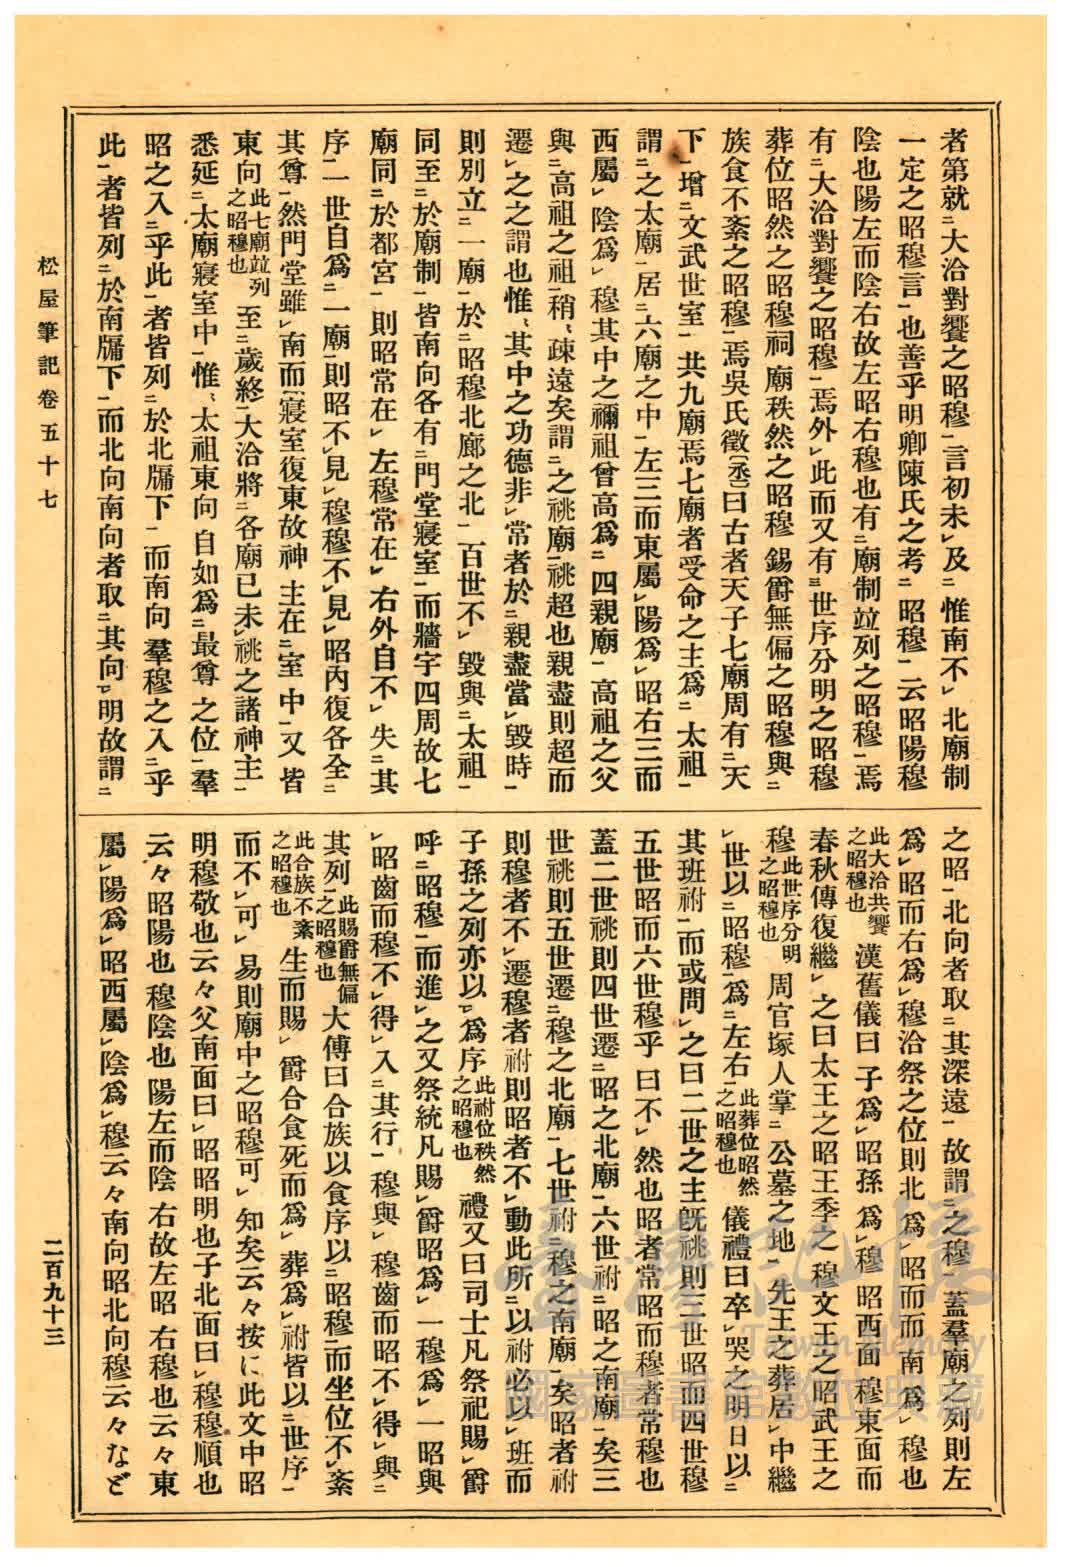 者第就㆓大洽對饗之昭穆㆒言初未㆑及㆓惟南不㆑北廟制
一定之昭穆言㆒也善乎明卿陳氏之考㆓昭穆㆒云昭陽穆
陰也陽左而陰右故左昭右穆也有㆓廟制竝列之昭穆㆒焉
有㆓大洽對饗之昭穆㆒焉外㆑此而又有㆔世序分明之昭穆
葬位昭然之昭穆祠廟秩然之昭穆錫爵無偏之昭穆與㆓
族食不紊之昭穆㆒焉吳氏徵〔丞〕曰古者天子七廟周有㆓天
下㆒增㆓文武世室㆒共九廟焉七廟者受命之主爲㆓太祖㆒
謂㆓之太廟㆒居㆓六廟之中㆒左三而東屬㆑陽爲㆑昭右三而
西屬㆑陰爲㆑穆其中之禰祖曾高爲㆓四親廟㆒高祖之父
與㆓高祖之祖㆒稍〻疎遠矣謂㆓之祧廟㆒祧超也親盡則超而
遷㆑之之謂也惟〻其中之功德非㆑常者於㆓親盡當㆑毀時㆒
則別立㆓一廟㆒於㆓昭穆北廊之北㆒百世不㆑毀與㆓太祖㆒
同至㆓於廟制㆒皆南向各有㆓門堂寢室㆒而牆宇四周故七
廟同㆓於都宮㆒則昭常在㆑左穆常在㆑右外自不㆑失㆓其
序㆒一世自爲㆓一廟㆒則昭不㆑見㆑穆穆不㆑見㆑昭內復各全㆓
其尊㆒然門堂雖㆑南而寢室復東故神主在㆓室中㆒又皆
東向此七廟竝列之昭穆也至㆓歲終㆒大洽將㆓各廟已未㆑祧之諸神主㆒
悉延㆓太廟寢室中㆒惟〻太祖東向自如爲㆓最尊之位㆒羣
昭之入㆓乎此㆒者皆列㆓於北牖下㆒而南向羣穆之入㆓乎
此㆒者皆列㆓於南牖下㆒而北向南向者取㆓其向㆑明故謂㆓
之昭㆒北向者取㆓其深遠㆒故謂㆓之穆㆒蓋羣廟之列則左
爲㆑昭而右爲㆑穆洽祭之位則北爲㆑昭而而南爲㆑穆也
此大洽共饗之昭穆也漢舊儀曰子爲㆑昭孫爲㆑穆昭西面穆東面而
春秋傳復繼㆑之曰太王之昭王季之穆文王之昭武王之
穆此世序分明之昭穆也周官塚人掌㆓公墓之地㆒先王之葬居㆑中繼
㆑世以㆓昭穆㆒爲㆓左右㆒此葬位昭然之昭穆也儀禮曰卒㆑哭之明日以㆓
其班祔㆒而或問㆑之曰二世之主旣祧則三世昭而四世穆
五世昭而六世穆乎曰不㆑然也昭者常昭而穆者常穆也
蓋二世祧則四世遷㆓昭之北廟㆒六世祔㆓昭之南廟㆒矣三
世祧則五世遷㆓穆之北廟㆒七世祔㆓穆之南廟㆒矣昭者祔
則穆者不㆑遷穆者祔則昭者不㆑動此所㆓以祔必以㆑班而
子孫之列亦以㆑爲序此祔位秩然之昭穆也禮又曰司士凡祭祀賜㆑爵
呼㆓昭穆㆒而進㆑之又祭統凡賜㆑爵昭爲㆑一穆爲㆑一昭與
㆑昭齒而穆不㆑得㆑入㆓其行㆒穆與㆑穆齒而昭不㆑得㆑與㆓
其列㆒此賜爵無偏之昭穆也大傳曰合族以食序以㆓昭穆㆒而坐位不㆑紊
此合族不紊之昭穆也生而賜㆑爵合食死而爲㆑葬爲㆑祔皆以㆓世序㆒
而不㆑可㆑易則廟中之昭穆可㆑知矣云々按に此文中昭
明穆敬也云々父南面曰㆑昭昭明也子北面曰㆑穆穆順也
云々昭陽也穆陰也陽左而陰右故左昭右穆也云々東
屬㆑陽爲㆑昭西屬㆑陰爲㆑穆云々南向昭北向穆云々など
松屋筆記卷五十七
二百九十三
臺灣記憶
Taiwan Memory
國家圖書館數位典藏